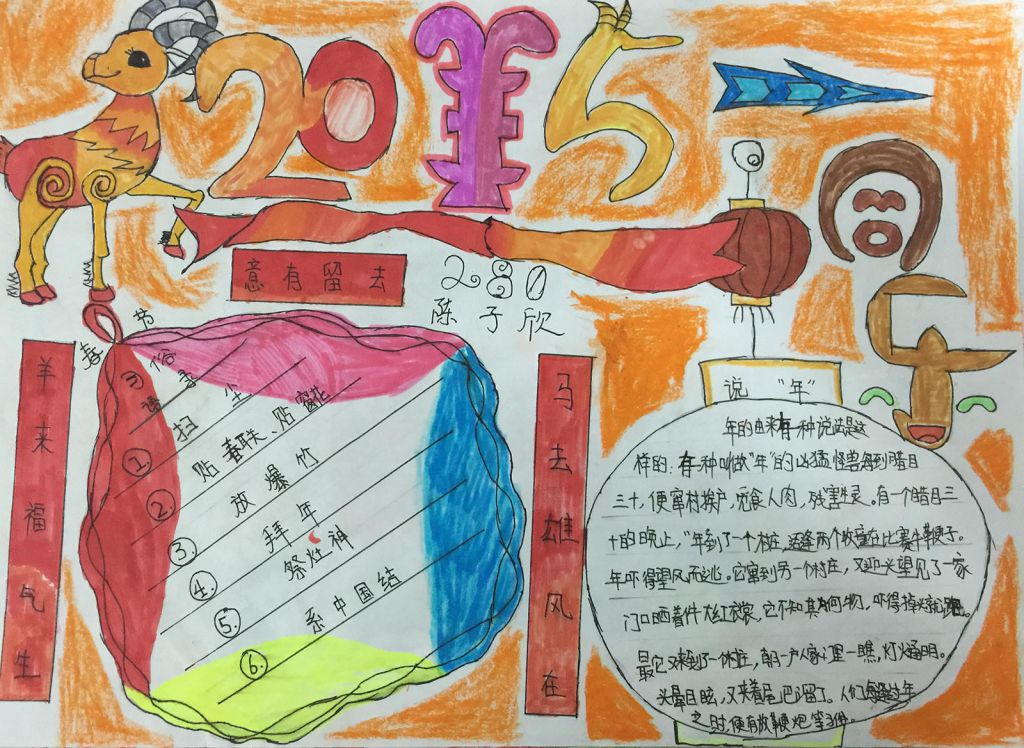 2015
意有留去
280
陈子欣
羊来福气生
春节
习俗
扫尘
① 贴春联、贴窗花
② 放爆竹
③ 拜年
④ 祭灶神
⑤ 系中国结
⑥
马去雄风在
说 "年"
年的由来有一种说法是这
样的:有一种叫做"年"的凶猛怪兽每到腊月
三十,便窜村挨户,觅食人肉,残害生灵。有一个腊月三
十的晚上,"年到了一个村庄,适逢两个牧童在比赛牛鞭子。
年吓得望风而逃。它窜到另一个村庄,又迎头望见了一家
门口晒着件大红衣裳,它不知其为何物,吓得掉头就跑。
它又来到了一个村庄,朝一户人家门里一瞧,灯火通明。
头晕目眩,又夹着尾巴溜了。人们每逢过年
之时,便有放鞭炮等习俗。